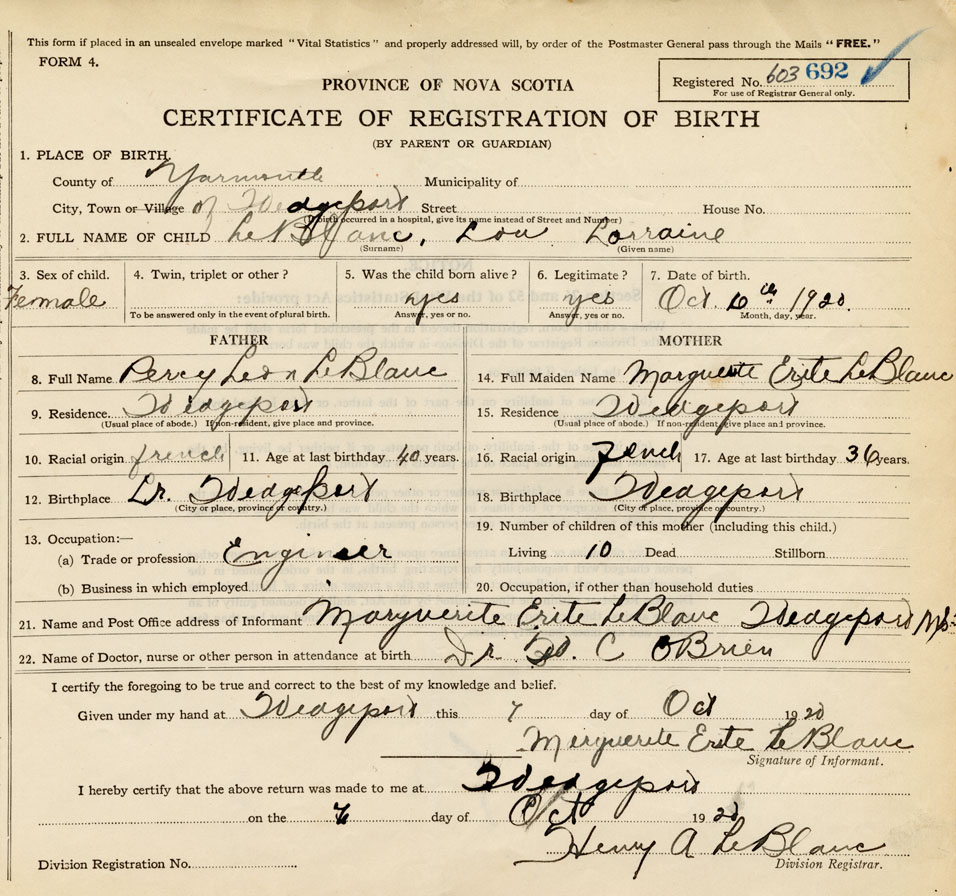 This form if placed in an unsealed envelope marked "Vital Statistics" and properly addressed will, by order of the Postmaster General pass through the Mails "FREE."
FORM 4.
Registered No. 603 692
For use of Registrar General only.
PROVINCE OF NOVA SCOTIA
CERTIFICATE OF REGISTRATION OF BIRTH
(BY PARENT OR GUARDIAN)
1. PLACE OF BIRTH
County of Yarmouth Municipality of
City, Town or Village of Wedgeport Street House No.
(If birth occurred in a hospital, give its name instead of Street and Number)
2. FULL NAME OF CHILD LeBlanc, Lou Lorraine
(Surname) (Given name)
3. Sex of child. 4. Twin, triplet or other? 5. Was the child born alive? 6. Legitimate? 7. Date of birth.
Female yes yes Oct. 6th 1920.
To be answered only in the event of plural birth. Answer, yes or no. Answer, yes or no. Month, day, year.
FATHER MOTHER
8. Full Name Percy Leon LeBlanc 14. Full Maiden Name Marguerite Erite LeBlanc
9. Residence. Wedgeport 15. Residence Wedgeport
(Usual place of abode.) If non-resident, give place and province. (Usual place of abode.) If non-resident, give place and province.
10. Racial origin french 11. Age at last birthday 40 years. 16. Racial origin french 17. Age at last birthday 36 years.
12. Birthplace Lr. Wedgeport 18. Birthplace Wedgeport
(City or place, province or country.) (City or place, province or country.)
13. Occupation:— 19. Number of children of this mother (including this child.)
(a) Trade or profession Enginer Living 10 Dead Stillborn
(b) Business in which employed 20. Occupation, if other than household duties
21. Name and Post Office address of Informant Marguerite Erite LeBlanc Wedgeport N.S.
22. Name of Doctor, nurse or other person in attendance at birth Dr. C OBrien
I certify the foregoing to be true and correct to the best of my knowledge and belief.
Given under my hand at Wedgeport this 7 day of Oct 1920
Merguerite Erite LeBlanc
Signature of Informant.
I hereby certify that the above return was made to me at Wedgeport
on the 7 day of Oct 1920
Henry A LeBlanc
Division Registration No. Division Registrar.